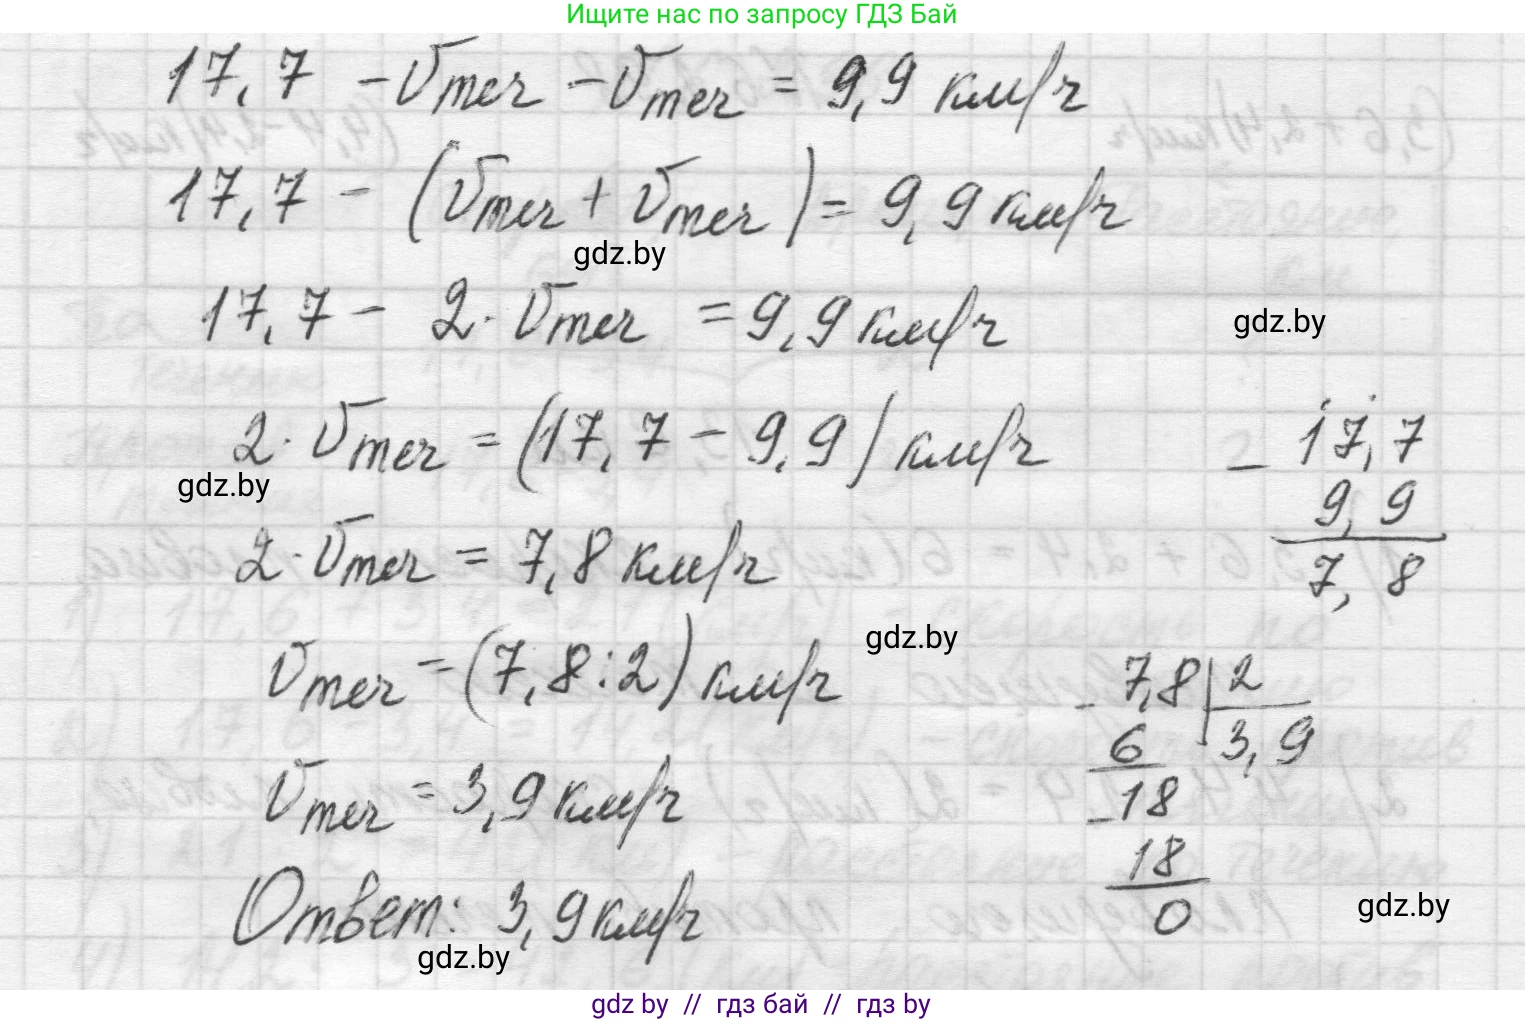 Ищите нас по запросу ГДЗ Бай
17,7 - vтеч - vтеч = 9,9 км/ч
17,7 - (vтеч + vтеч) = 9,9 км/ч
gdz.by
17,7 - 2 · vтеч = 9,9 км/ч
gdz.by
2 · vтеч = (17,7 - 9,9) км/ч
gdz.by
- 17,7
9,9
7,8
2 · vтеч = 7,8 км/ч
vтеч = (7,8 : 2) км/ч
gdz.by
- 7,8 | 2
6 | 3,9
- 18
18
0
vтеч = 3,9 км/ч
Ответ: 3,9 км/ч
gdz.by
gdz.by
gdz by // гдз бай // гдз by